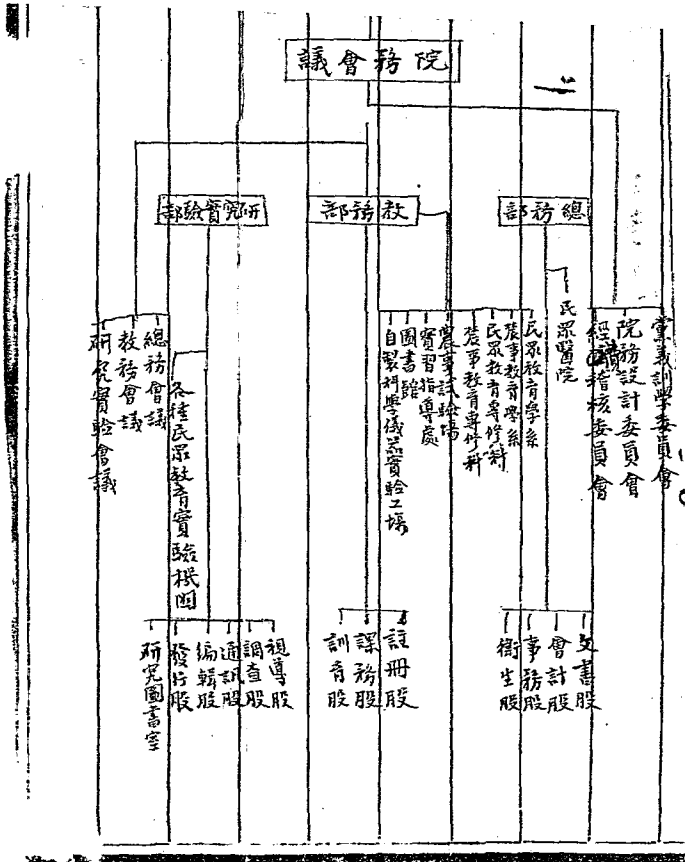 院務會議
總務部
教務部
研究實驗部
黨義訓學委員會
院務設計委員會
經費稽核委員會
民眾醫院
民眾教育學系
農事教育學系
民眾教育專修科
農事教育專修科
農事試驗場
實習指導處
圖書館
自製科學儀器實驗工場
各種民眾教育實驗機関
總務會議
教務會議
研究實驗會議
文書股
會計股
事務股
衛生股
註冊股
課務股
訓育股
視導股
調查股
通訊股
編輯股
發行股
研究圖書室